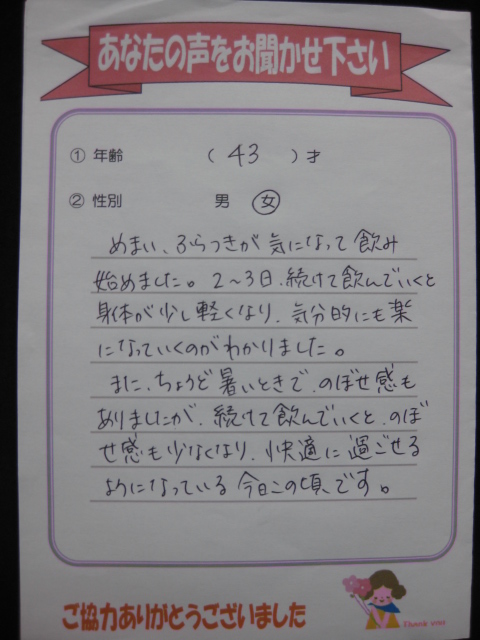 あなたの声をお聞かせ下さい
① 年齢 ( 43 ) 才
② 性別 男 女
めまい、ふらつきが 気になって 飲み
始めました。2～3日、続けて飲んでいくと
身体が少し軽くなり、気分的にも楽
になっていくのがわかりました。
また、ちょうど暑いときで、のぼせ感も
ありましたが、続けて飲んでいくと、のぼ
せ感も少なくなり、快適に過ごせる
ようになっている今日この頃です。
ご協力ありがとうございました
Thank you